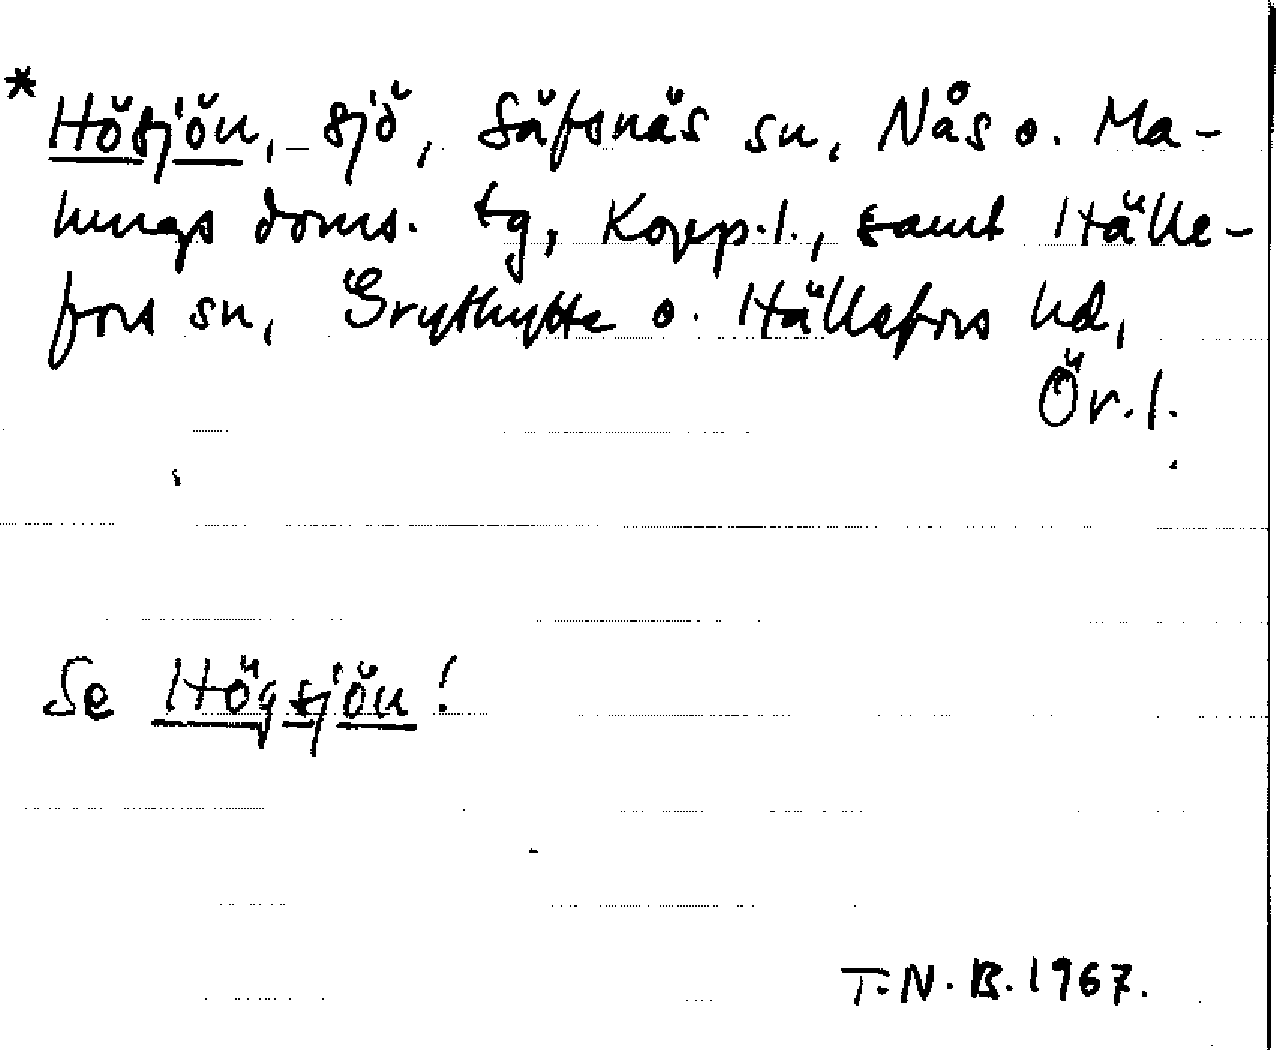 * Hösjön, sjö, Säfsnäs sn, Nås o. Ma-
lungs doms. tg, Kopp.l., samt Hälle-
fors sn, Grythytte o. Hällefors hd,
Ör.l.
Se Högsjön!
T.N.B.1967.